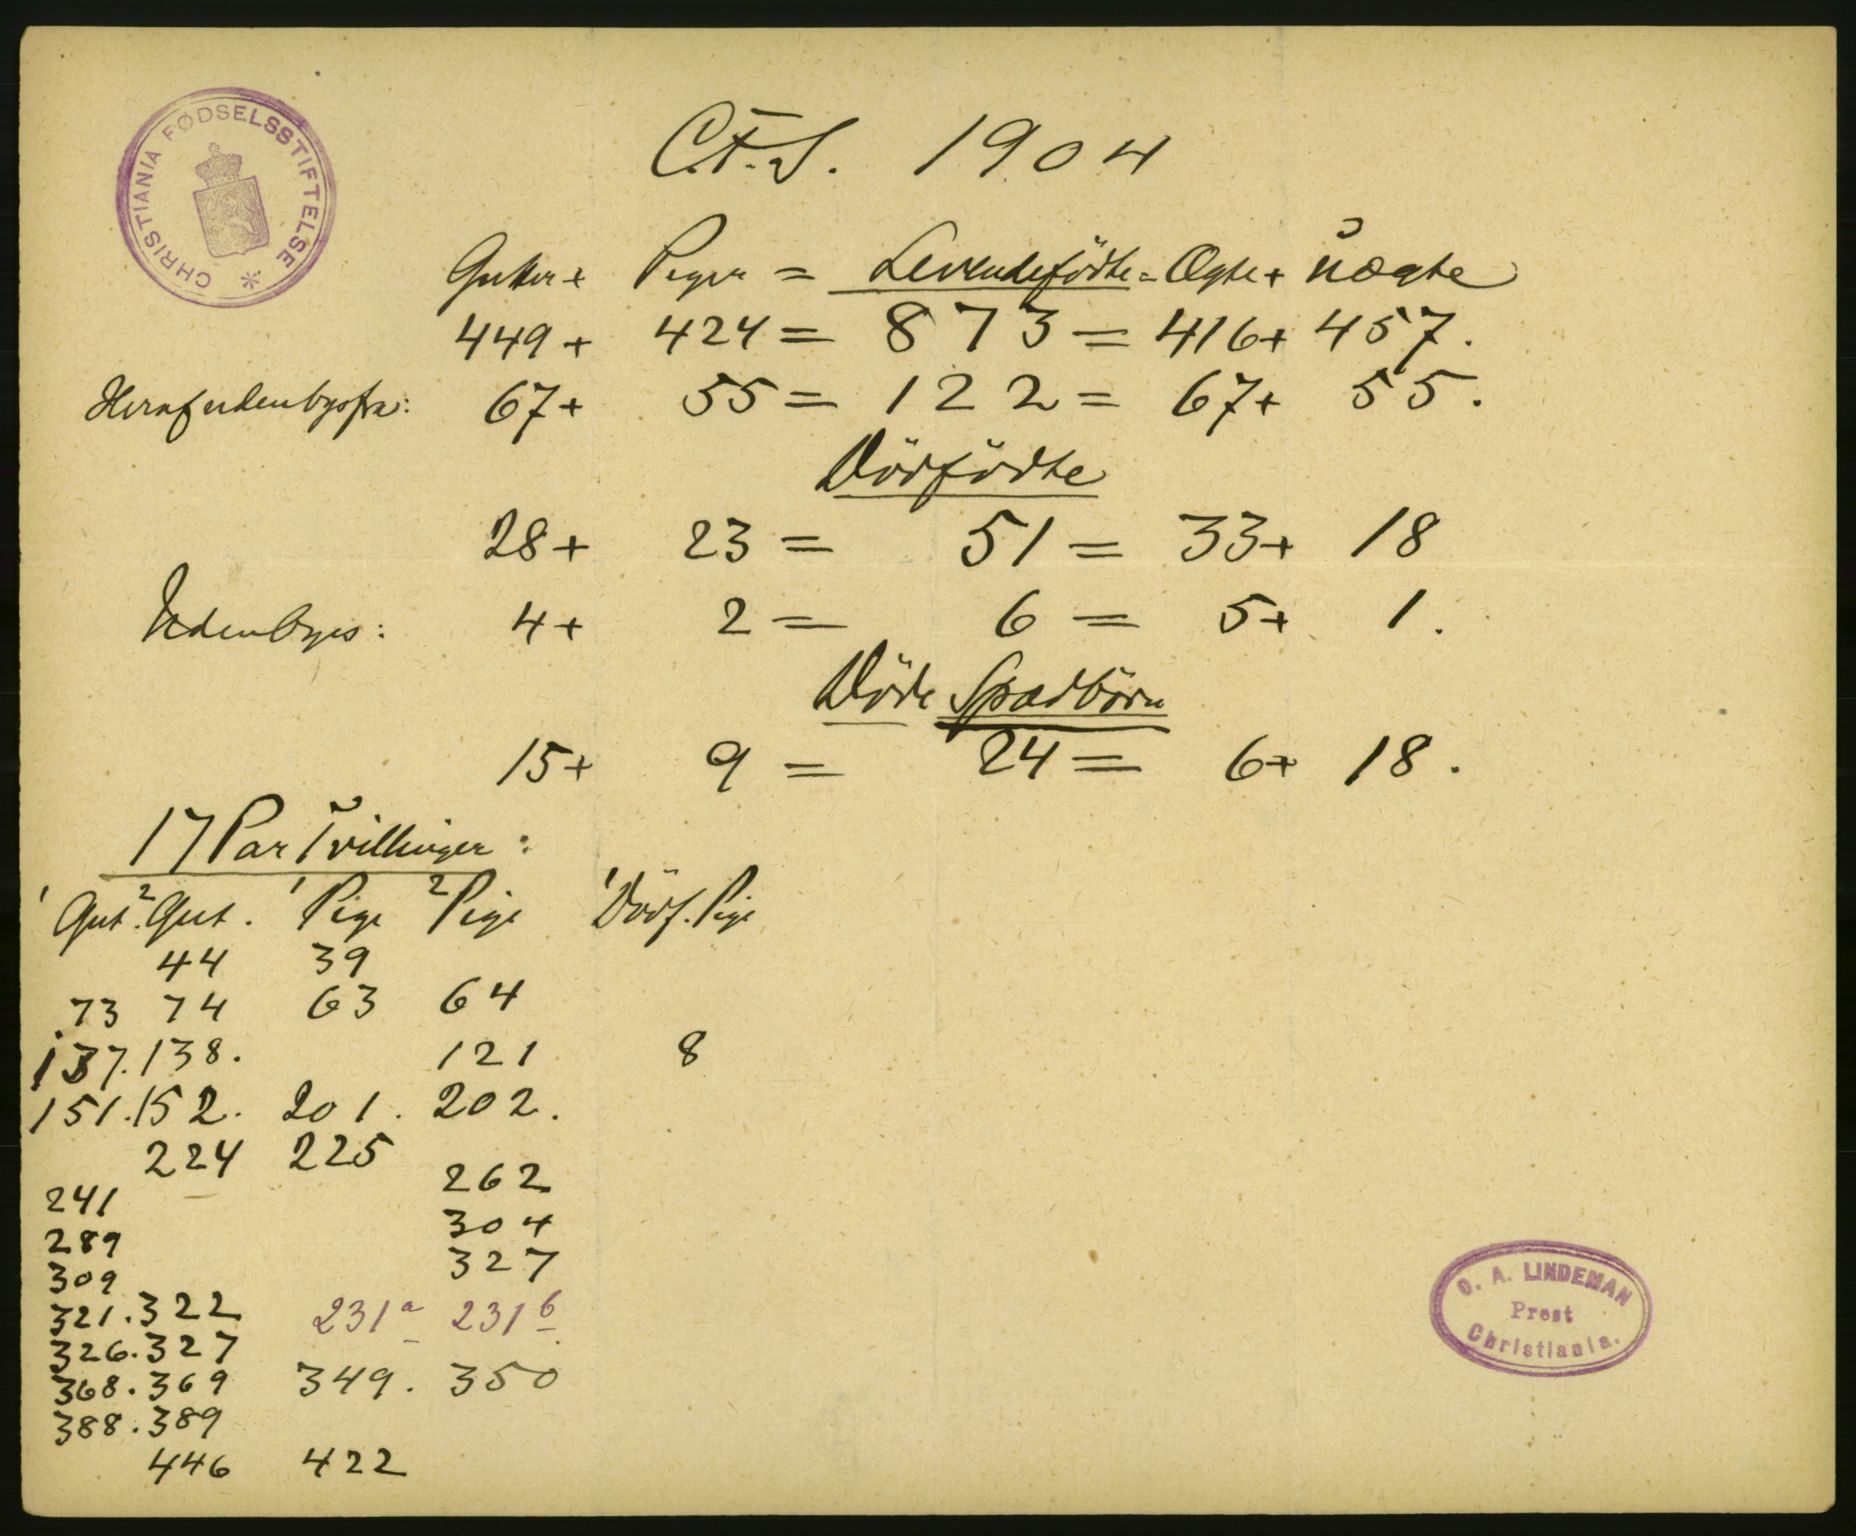 CHRISTIANIA FØDSELSSTIFTELSE
C.F.S. 1904
Gutter + Piger = Levendefödte = Ægte + Uægte
449 + 424 = 873 = 416 + 457.
Heraf udenbysfra: 67 + 55 = 122 = 67 + 55.
Dödfödte
28 + 23 = 51 = 33 + 18
Udenbys: 4 + 2 = 6 = 5 + 1.
Döde Spædbörn
15 + 9 = 24 = 6 + 18.
17 Par Tvillinger:
1 Gut. 2 Gut. 1 Pige 2 Pige 1 Dödf. Pige
44 39
73 74 63 64
137. 138. 121 8
151. 152. 201. 202.
224 225
262
241
304
289
327
309
321. 322 231a 231b
326. 327
368. 369 349. 350
388. 389
446 422
O. A. LINDEMAN
Prest
Christiania.